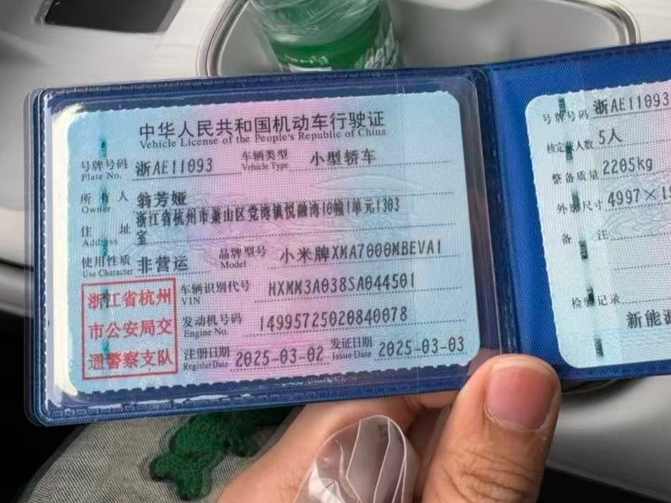 中华人民共和国机动车行驶证
Vehicle License of the People's Republic of China
号牌号码 Plate No. 浙AE11093 车辆类型 Vehicle Type 小型轿车
所有人 Owner 翁芳娅
住址 Address 浙江省杭州市萧山区党湾镇悦融湾10幢1单元1303
室
使用性质 Use Character 非营运 品牌型号 Model 小米牌XMA7000MBEVA1
浙江省杭州
市公安局交
通警察支队
车辆识别代号 VIN HXMM3A038SA044501
发动机号码 Engine No. 14995725020840078
注册日期 Register Date 2025-03-02 发证日期 Issue Date 2025-03-03
号牌号码 浙AE11093
核定载人数 5人
整备质量 2205kg
外廓尺寸 4997×1
备注
检验记录
新能源